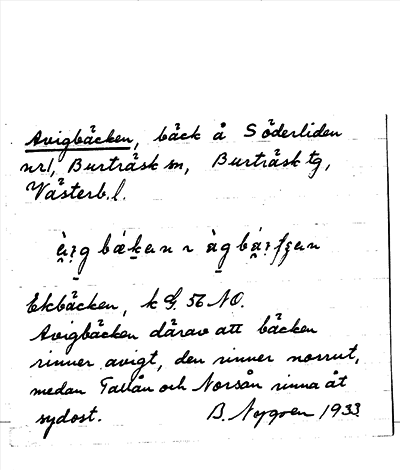 Avigbäcken, bäck å Söderliden
nr 1, Burträsk sn, Burträsk tg,
Västerb. l.
Ekbäcken, k G. 56 NO.
Avigbäcken därav att bäcken
rinner avigt, den rinner norrut,
medan Tallån och Norsån rinna åt
sydost. B. Nygren 1933